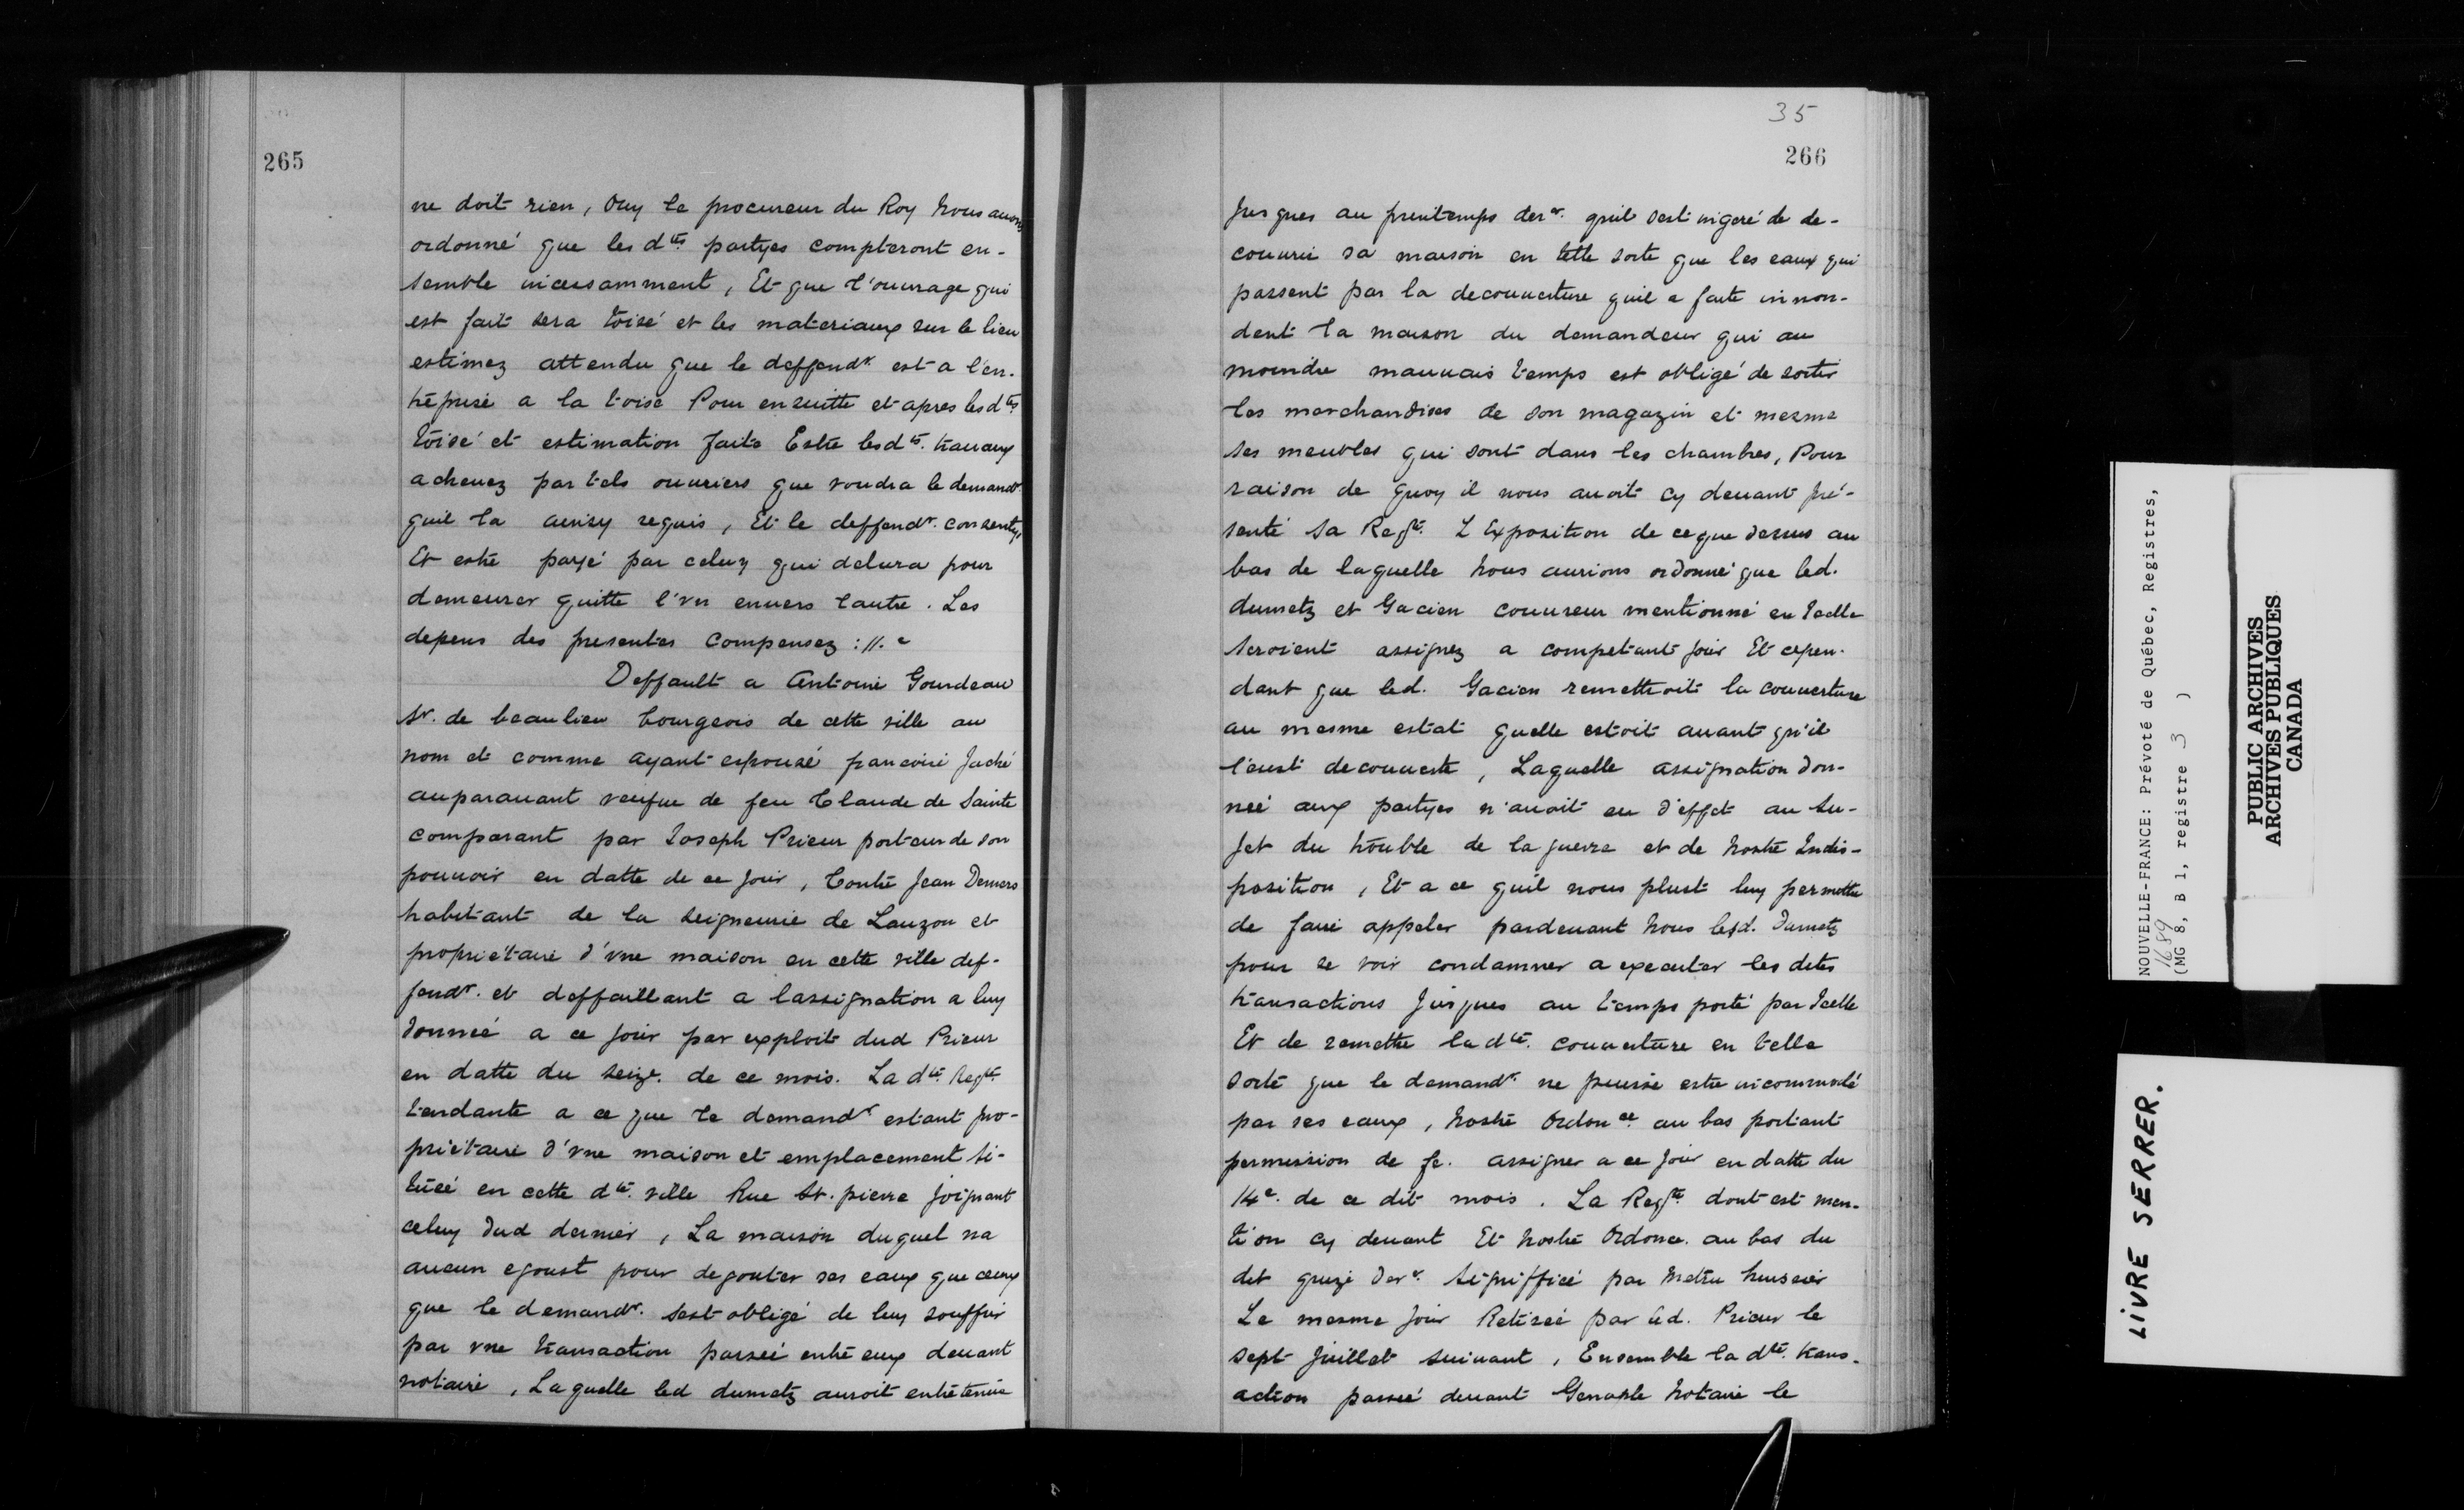 265
ne doit rien, Ouy le procureur du Roy nous auons
ordonné que les dtes partyes compteront en-
semble incessamment, Et que l'ouurage qui
est fait sera toisé et les materiaux sur le lieu
estimez attendu que le deffendr est a l'en-
treprise a la toise Pour ensuitte et apres lesdtes
toisé et estimation faite Estre lesdts. trauaux
acheuez par tels ouuriers que voudra le demandr
quil la aussy requis, Et le deffendr. consenty,
Et estre payé par celuy qui deburа pour
demeurer quitte l'vn enuers lautre. Les
depens des presentes compensez ://.
Deffault a Antoine Gourdeau
Sr. de beaulieu bourgeois de cette ville au
nom et comme ayant espousé francoise Jaché
auparauant veufue de feu Claude de Sainte
comparant par Joseph Prieur porteur de son
pouuoir en datte de ce jour, Contre Jean Demers
habitant de la seigneurie de Lauzon et
proprietaire d'vne maison en cette ville def-
fendr. et deffaillant a lassignation a luy
donneé a ce jour par exploit dud Prieur
en datte du seize. de ce mois. La dte Reqte
tendante a ce que le demandr estant pro-
prietaire d'vne maison et emplacement si-
tueé en cette dte. ville Rue St. pierre joignant
celuy dud dernier, La maison duquel na
aucun egoust pour degouter ses eaux que ceux
que le demandr. sest obligé de luy souffrir
par vne transaction passeé entre eux deuant
notaire, Laquelle led dumetz auroit entretenue
35
266
jusques au printemps derr. quil sest ingeré de de-
couurir sa maison en telle sorte que les eaux qui
passent par la decouuerture quil a faite innon-
dent la maison du demandeur qui au
moindre mauuais temps est obligé de sortir
les marchandises de son magazin et mesme
ses meubles qui sont dans les chambres, Pour
raison de quoy il nous auoit cy deuant pré-
senté sa Reqte. L Exposition de ceque dessus au
bas de laquelle nous aurions ordonné que led.
dumetz et Gacien couureur mentionné en Icelle
seroient assignez a competant jour Et cepen-
dant que led. Gacien remettroit la couuerture
au mesme estat quelle estoit auant qu'il
l'eust decouuerte, Laquelle assignation don-
neé aux partyes n'auoit eu d'effet au su-
jet du trouble de la guerre et de nostre Indis-
position, Et a ce quil nous plust luy permettre
de faire appeler pardeuant nous lesd. Dumetz
pour se voir condamner a executer les dites
transactions jusques au temps porté par Icelle
Et de remettre la dte. couuerture en telle
sorte que le demandr ne puisse estre incommodé
par ses eaux, nostre Ordonce. au bas portant
permission de fe. assigner a ce jour en datte du
14e. de ce dit mois. La Reqte dont est men-
tion cy deuant Et nostre Ordonce. au bas du
dit quinze derr. signiffiee par Metru huissier
Le mesme jour Retireé par led. Prieur le
sept juillet suiuant, Ensemble la dte. trans-
action passeé deuant Genaple notaire le
NOUVELLE-FRANCE: Prévoté de Québec, Registres,
1689
(MG 8, B 1, registre 3 )
PUBLIC ARCHIVES
ARCHIVES PUBLIQUES
CANADA
LIVRE SERRER.